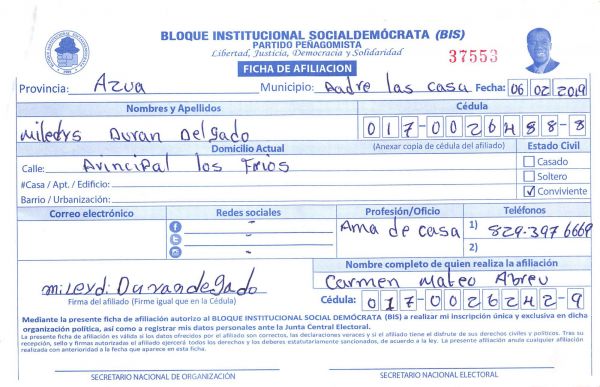 BLOQUE INSTITUCIONAL SOCIALDEMÓCRATA (BIS)
PARTIDO PEÑAGOMISTA
Libertad, Justicia, Democracia y Solidaridad
37553
FICHA DE AFILIACION
Provincia: Azua Municipio: Padre las casa Fecha: 06 02 2019
Nombres y Apellidos Cédula
Miledys Duran Delgado 017-0026488-8
Domicilio Actual (Anexar copia de cédula del afiliado) Estado Civil
Calle: Principal los Frios Casado
#Casa / Apt. / Edificio: Soltero
Barrio / Urbanización: Conviviente
Correo electrónico Redes sociales Profesión/Oficio Teléfonos
Ama de casa 1) 829-397 6669
2)
Nombre completo de quien realiza la afiliación
mileydi Durandelgado Carmen Mateo Abreu
Firma del afiliado (Firme igual que en la Cédula) Cédula: 017-0026242-9
Mediante la presente ficha de afiliación autorizo al BLOQUE INSTITUCIONAL SOCIAL DEMÓCRATA (BIS) a realizar mi inscripción única y exclusiva en dicha
organización política, así como a registrar mis datos personales ante la Junta Central Electoral.
La presente ficha de afiliación es válida si los datos ofrecidos por el afiliado son correctos, las declaraciones veraces y si el titular tiene el disfrute de sus derechos civiles y políticos. Tras su
recepción, sello y firmas autorizadas el afiliado ejercerá todos los derechos y los deberes estatutariamente sancionados, de acuerdo a la ley. La presente afiliación anula cualquier afiliación
realizada con anterioridad a la fecha que aparece en esta ficha.
SECRETARIO NACIONAL DE ORGANIZACIÓN SECRETARIO NACIONAL ELECTORAL